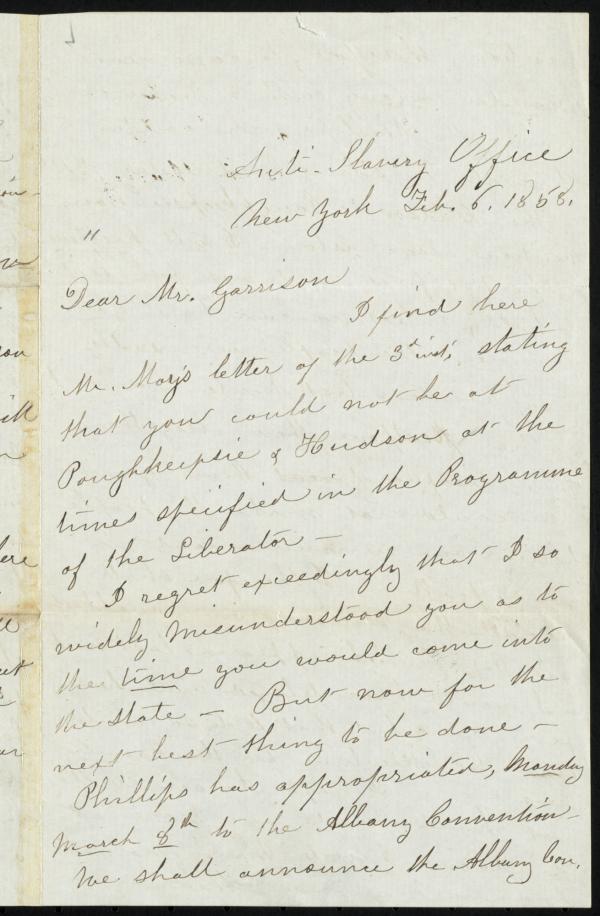 Anti-Slavery Office
New York Feb. 6. 1858.
"
Dear Mr. Garrison
I find here
Mr. May's letter of the 3d inst, stating
that you could not be at
Poughkeepsie & Hudson at the
times specified in the Programme
of the Liberator —
I regret exceedingly that I so
widely misunderstood you as to
the time you would come into
the state — But now for the
next best thing to be done —
Phillips has appropriated, Monday
March 8th to the Albany Convention —
We shall announce the Albany Con.